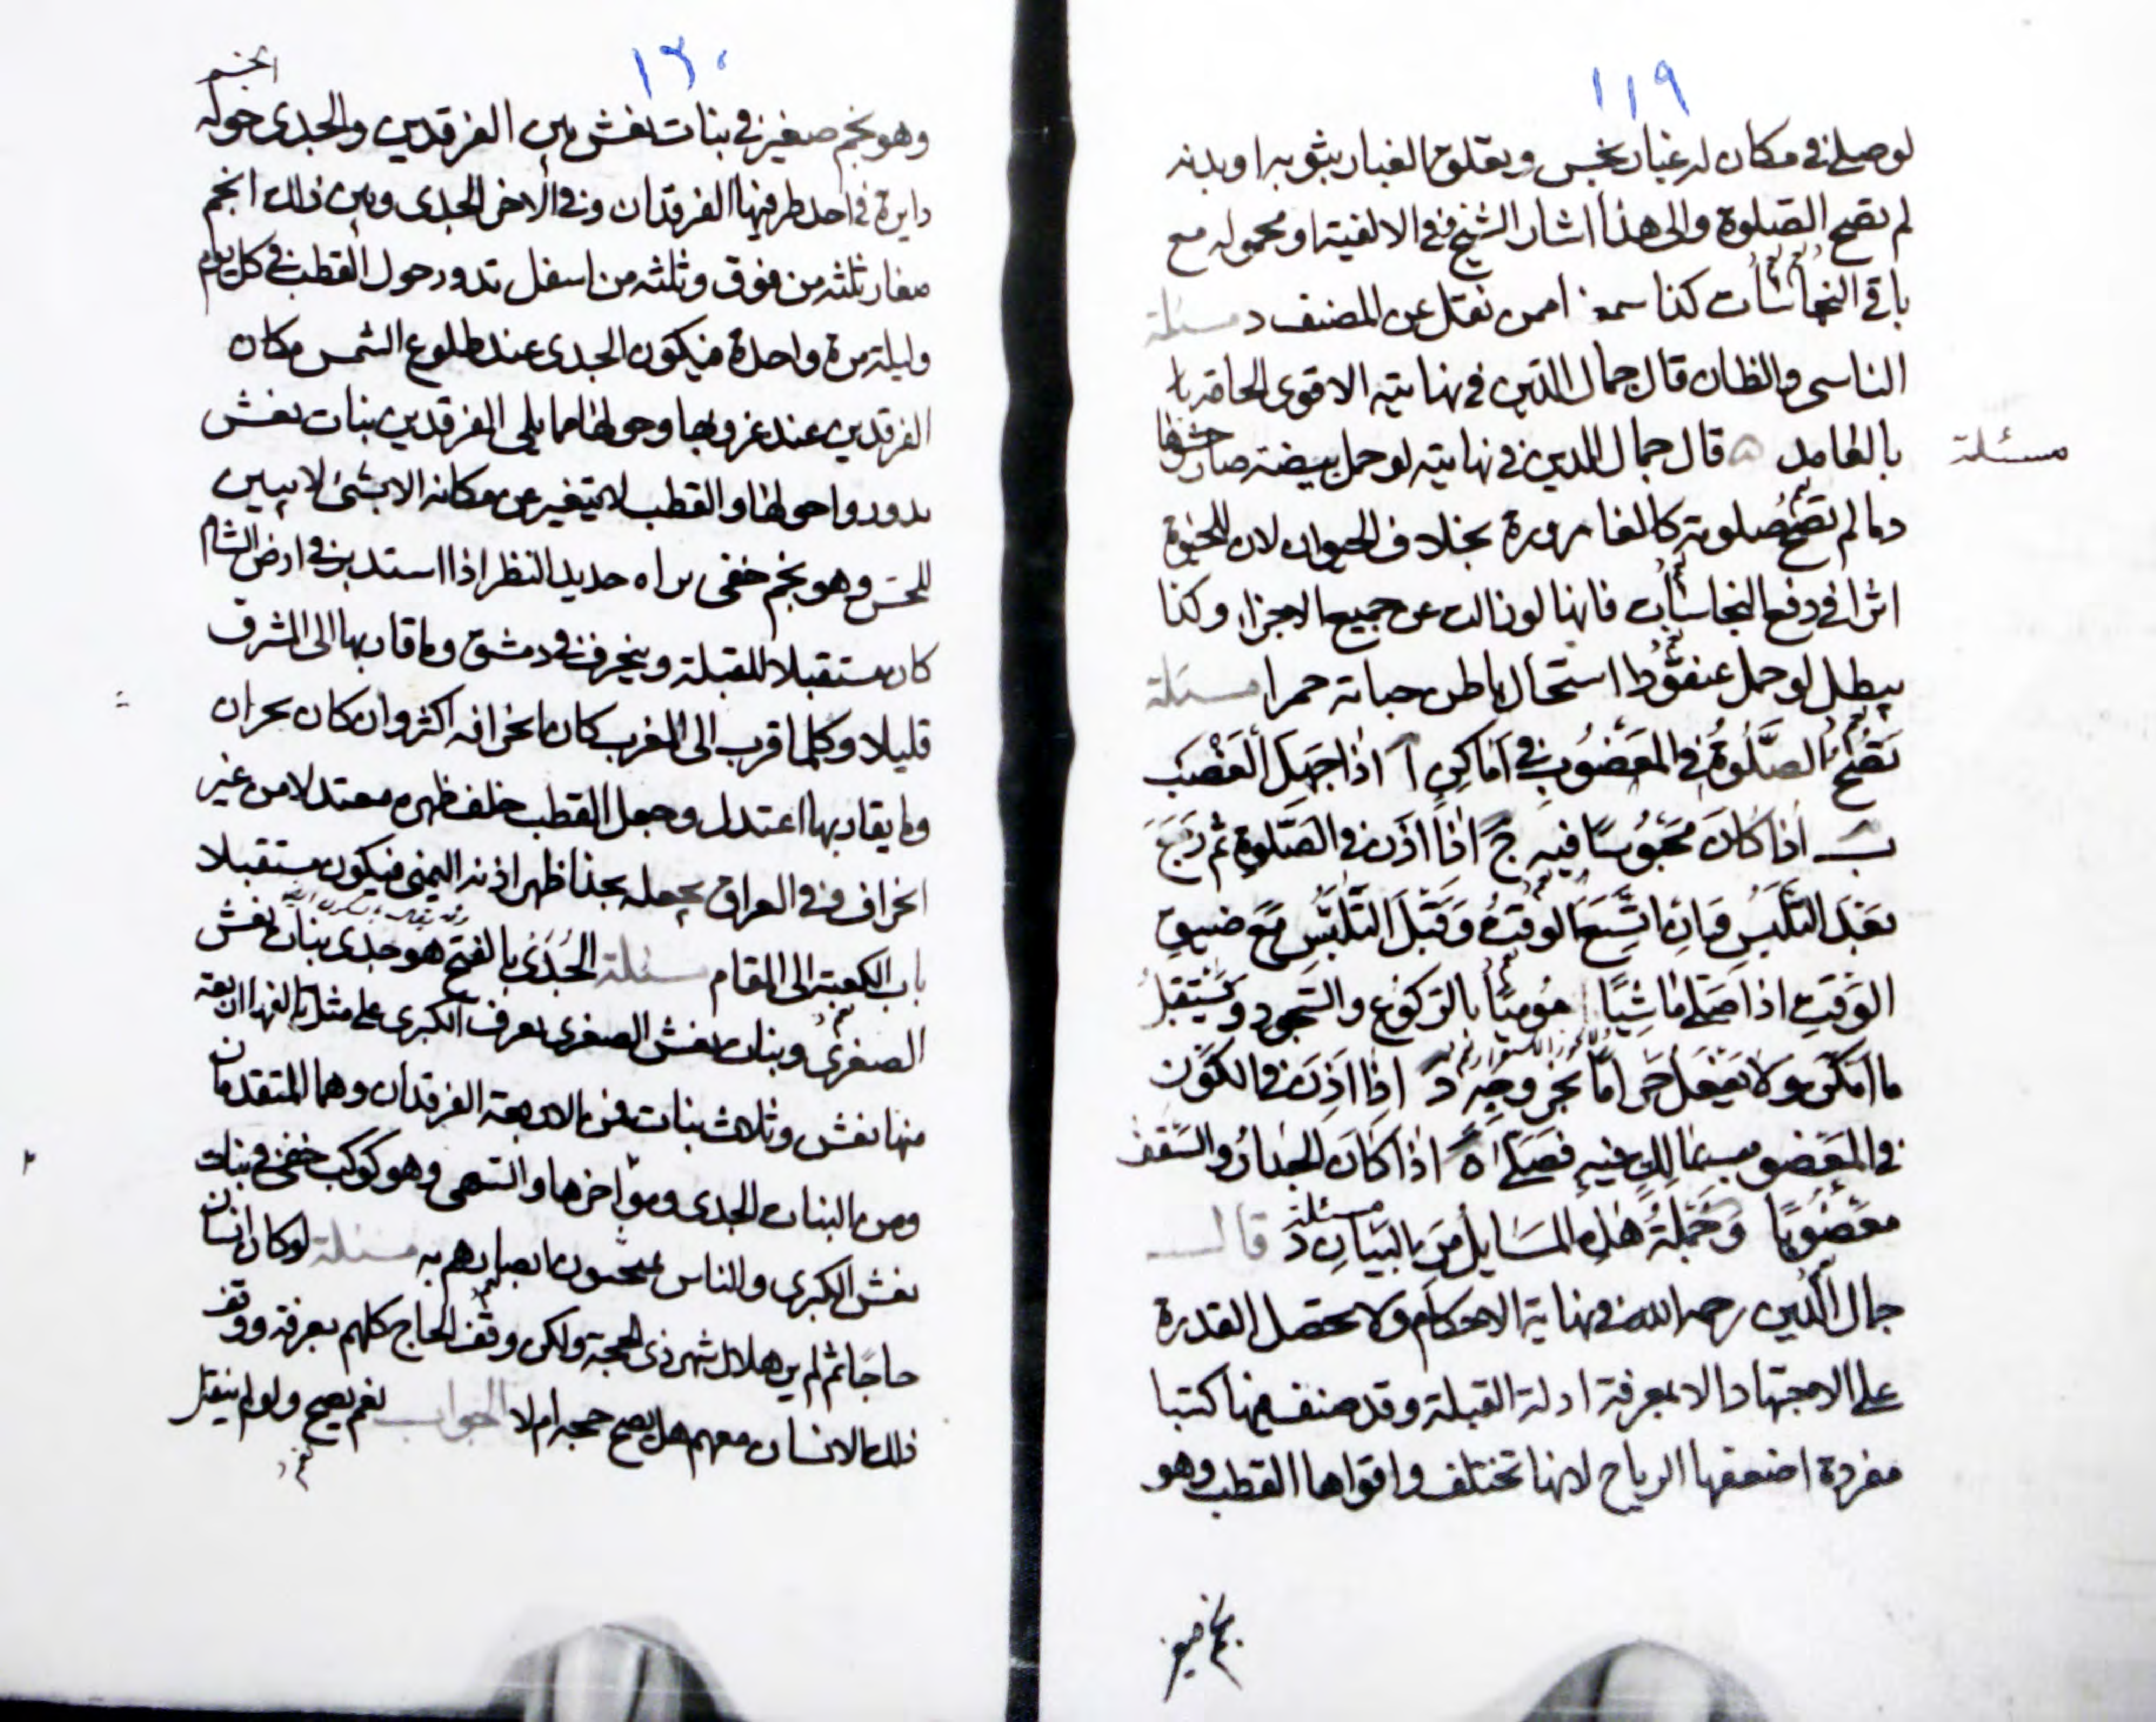 ١١٩
لو صلى في مكان له غبار نجس و يعلق الغبار بثوبه او بدنه
لم تصح الصلوة والى هذا اشار الشيخ في الالفية او محموله مع
باقي النجاسات كذا سمع ممن نقل عن المصنف د مسئلة
الناسى والظان قال جمال الدين في نهايته الاقوى الحاقه
مسئلة
بالعامد ۵ قال جمال الدين في نهايته لو حمل بيضة صار حشوها
دما لم تصح صلوته كالقارورة بخلاف الحيوان لان للحيوة
اثرا في دفع النجاسات فانها لو زالت عن جميع الاجزا وكذا
يبطل لو حمل عنقودا استحال باطن حباته حمرا مسئلة
تَصُحُّ الصَّلوةُ في المَغصُوبِ في اَمَاكِن آ اذا جَهِلَ الغَصْبَ
بَ اذا كانَ مَحبُوسًا فيهِ جَ اذا اَذِنَ في الصَّلوةِ ثُم رَجَعَ
بَعْدَ التَّلَبُّسِ وَاِن اتّسَعَ الوَقتُ وَقَبْلَ التَّلبُّسِ مَعَ ضيقِ
الوَقتِ اذا صَلى مَاشِيًا مُومِيًا بالرّكوُعِ والسّجودِ وَيَستَقبِلُ
ما امكَن وَلا يَفعَل حَرامًا بخُروجِهِ دَ اذا اَذِنَ في الكَوْن
في المَغصُوب مالِكه فيهِ فَصَلّى ه اذا كَانَ الجدارُ والسّقف
مَغصُوبًا وَ جُملةُ هذِهِ المسَايلِ مِنَ البَيانِ دَ مسئلة قال
جمال الدين رحمه الله في نهاية الاحكام ولا تحصل القدرة
على الاجتهاد الا بمعرفة ادلة القبلة وقد صنف فيها كتبا
مفردة اضعفها الرياح لانها تختلف واقواها القطب وهو
نجم صغير
١٢٠
وهو نجم صغير في بنات نعش بين الفرقدين والجدى حوله انجم
دايرة في احد طرفيها الفرقدان وفي الاخر الجدى وبين ذلك انجم
صغار ثلثه من فوق وثلثه من اسفل تدور حول القطب في كل يوم
وليلة مرة واحدة فيكون الجدى عند طلوع الشمس مكان
الفرقدين عند غروبها وحولها مما يلى الفرقدين بنات نعش
تدور حولها والقطب لا يتغير عن مكانه الا بشئ لا يبين
للحس وهو نجم خفى يراه حديد النظر اذا استدبره في ارض الشام
كان مستقبلا للقبلة وينحرف في دمشق وما قاربها الى المشرق
قليلا وكلما قرب الى المغرب كان انحرافه اكثر وان كان بحران
وما يقاربها اعتدل وجعل القطب خلف ظهره معتدلا من غير
انحراف وفي العراق يجعله بحذا ظهر اذنه اليمنى فيكون مستقبلا
باب الكعبة الى المقام مسئلة الجَدْى بالفتح هو جدى بنات نعش
الصغرى وبنات نعش الصغرى بقرب الكبرى على مثل تاليفها اربعة
منها نعش وثلاث بنات فمن الاربعة الفرقدان وهما المتقدمان
ومن البنات الجدى وهو اخرها والسهى وهو كوكب خفى في بنات
نعش الكبرى والناس يمتحنون ابصارهم به مسئلة لو كان انسان
حاجا ثم لم ير هلال شهر ذى الحجة ولكن وقف الحاج كلهم بعرفة ووقف
ذلك الانسان معهم هل يصح حجه ام لا الجواب نعم يصح ولو لم ينقل